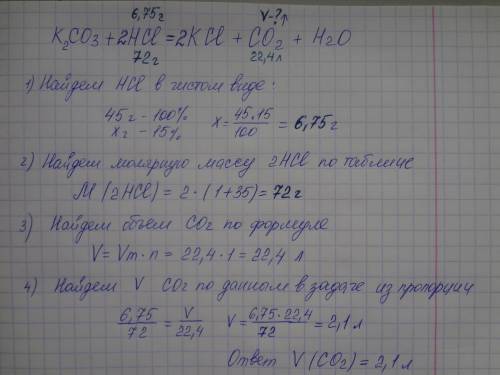 6,75г V-?↑
K₂CO₃ + 2HCl = 2KCl + CO₂ + H₂O
72г 22,4л
1) Найдем HCl в чистом виде:
45г - 100%
xг - 15% x = 45·15/100 = 6,75г
2) Найдем молярную массу 2HCl по таблице
M (2HCl) = 2·(1+35) = 72г
3) Найдем объем CO₂ по формуле
V = Vm·n = 22,4·1 = 22,4 л
4) Найдем V CO₂ по данным в задаче из пропорции
6,75/72 = V/22,4 V = 6,75·22,4/72 = 2,1л
Ответ V (CO₂) = 2,1л